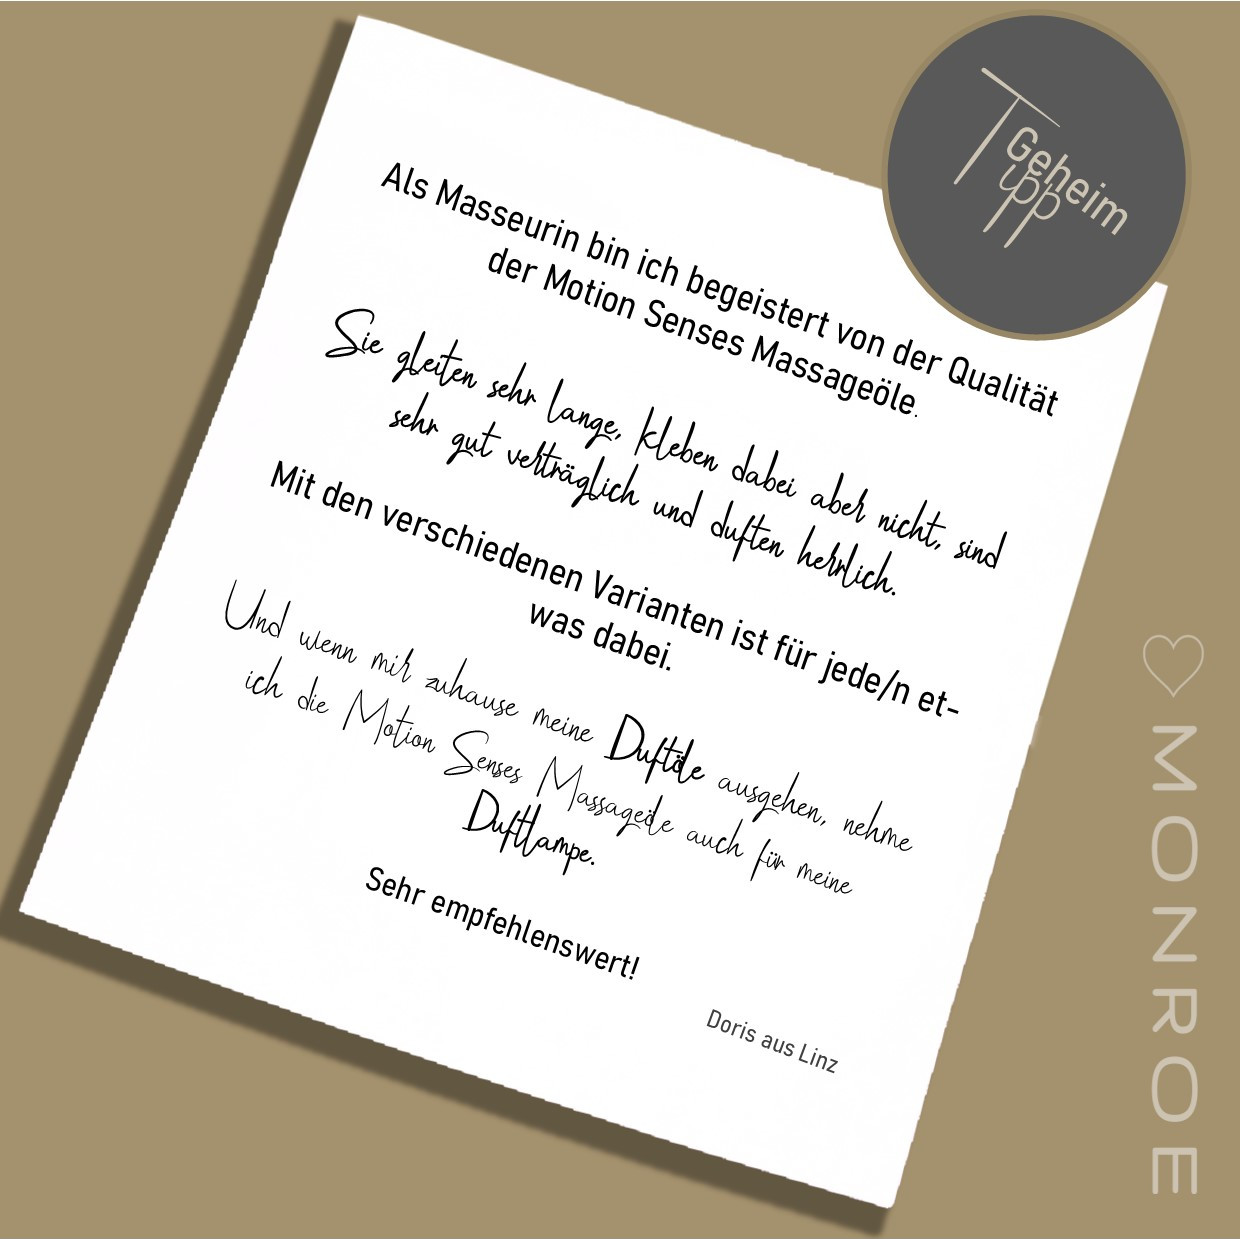 Geheim
Tipp
Als Masseurin bin ich begeistert von der Qualität
der Motion Senses Massageöle.
Sie gleiten sehr lange, kleben dabei aber nicht, sind
sehr gut verträglich und duften herrlich.
Mit den verschiedenen Varianten ist für jede/n et-
was dabei.
Und wenn mir zuhause meine Duftöle ausgehen, nehme
ich die Motion Senses Massageöle auch für meine
Duftlampe.
Sehr empfehlenswert!
Doris aus Linz
MONROE